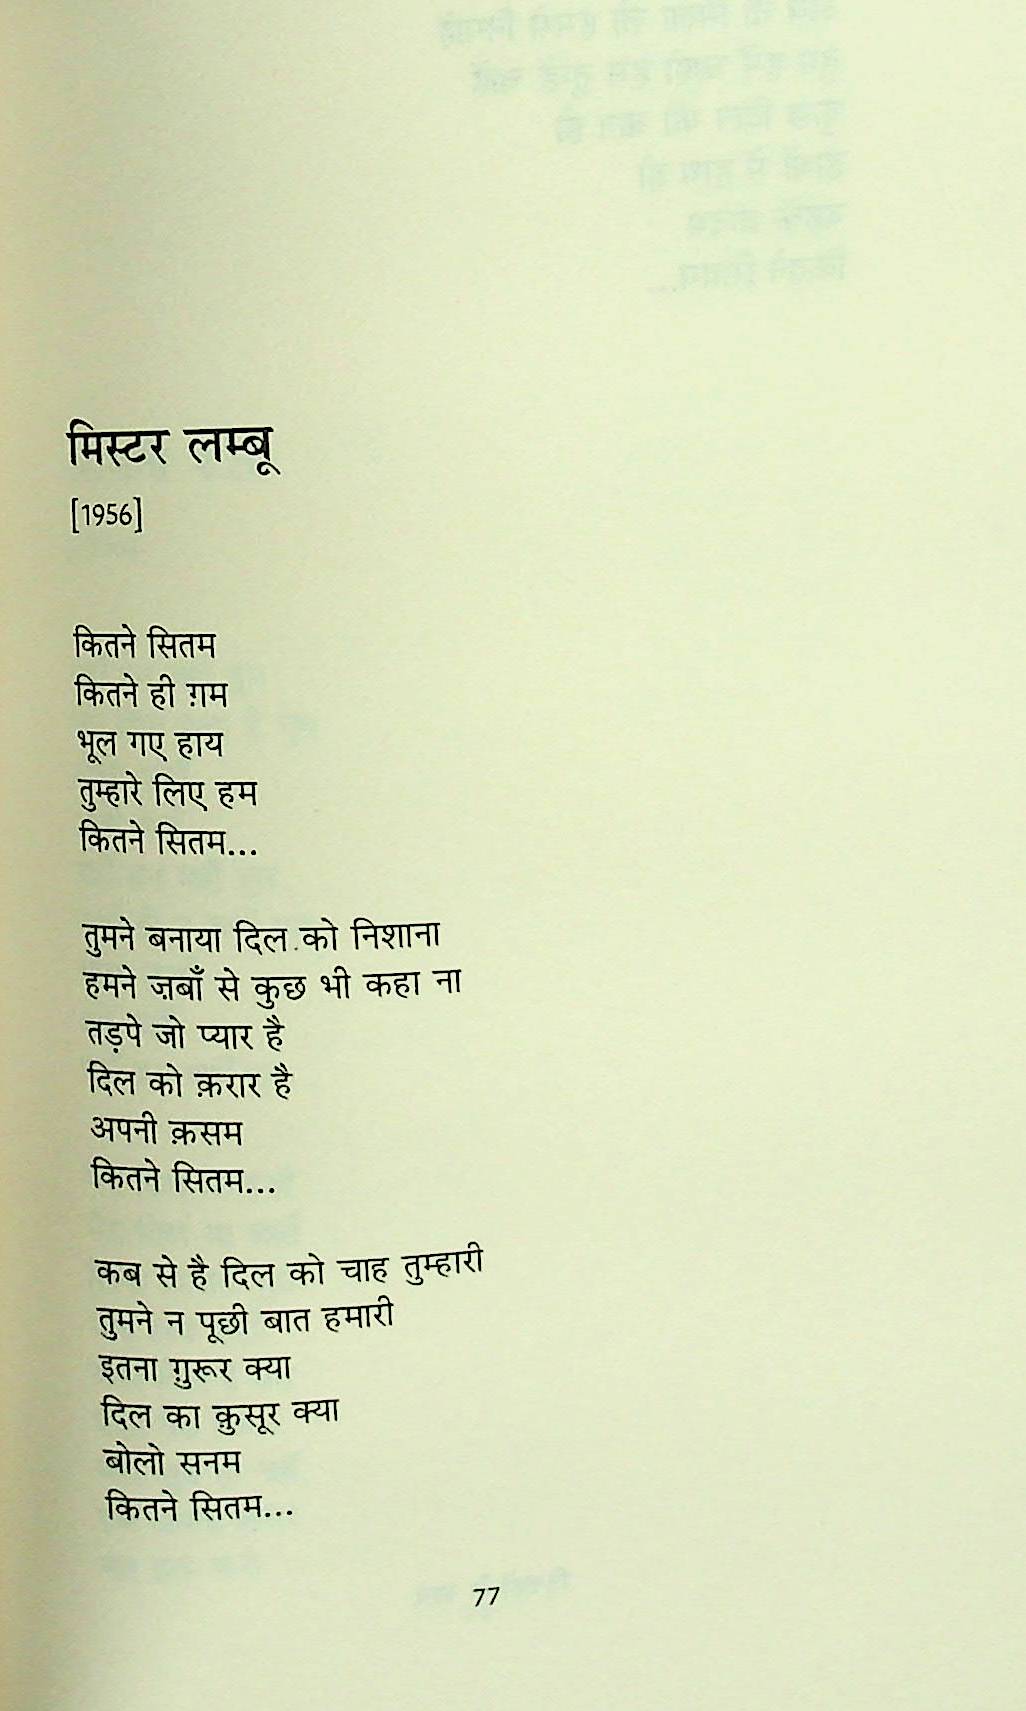 मिस्टर लम्बू
[1956]
कितने सितम
कितने ही ग़म
भूल गए हाय
तुम्हारे लिए हम
कितने सितम...
तुमने बनाया दिल को निशाना
हमने ज़बाँ से कुछ भी कहा ना
तड़पे जो प्यार है
दिल को क़रार है
अपनी क़सम
कितने सितम...
कब से है दिल को चाह तुम्हारी
तुमने न पूछी बात हमारी
इतना ग़ुरूर क्या
दिल का क़ुसूर क्या
बोलो सनम
कितने सितम...
77